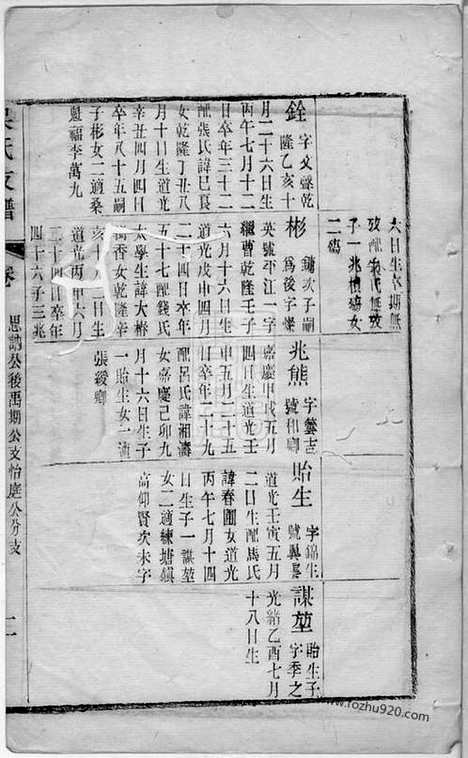 六日生卒無
攷配□氏無攷
子一兆□□女
二殤
銓 字文聲乾
隆乙亥十
月二十六日生
丙午七月十二
日卒年三十二
配張氏諱巳艮
女乾隆丁丑八
月十日生道光
辛丑四月四日
卒年八十五嗣
子彬女二適桑
□福李萬九
彬 □次子嗣
為後字□
英號平江一字
□曹乾隆壬子
六月十六日生
道光戊申四月
二十四日卒年
五十七配錢氏
太學生諱大椿
□香女乾隆辛
亥十月八二日生
道光丙申六月
二十四日卒年
四十六子三兆
兆熊 字藝吉
號和卿
嘉慶甲戌五月
四日生道光壬
申五月二十五
日卒年三十九
配呂氏諱湘濤
女嘉慶己卯九
月十六日生子
一貽生女一適
張綬卿
貽生 字錦生
號□□
道光壬寅五月
二日生配馬氏
諱春圃女道光
丙午七月十四
日生子一謀堃
女二適練塘鎮
高仰賢次未字
謀堃 貽生子
字季之
光緒乙酉七月
十八日生
氏支譜
卷
思訥公後禹期公支怡庭公分支
二
www.fozhu920.com